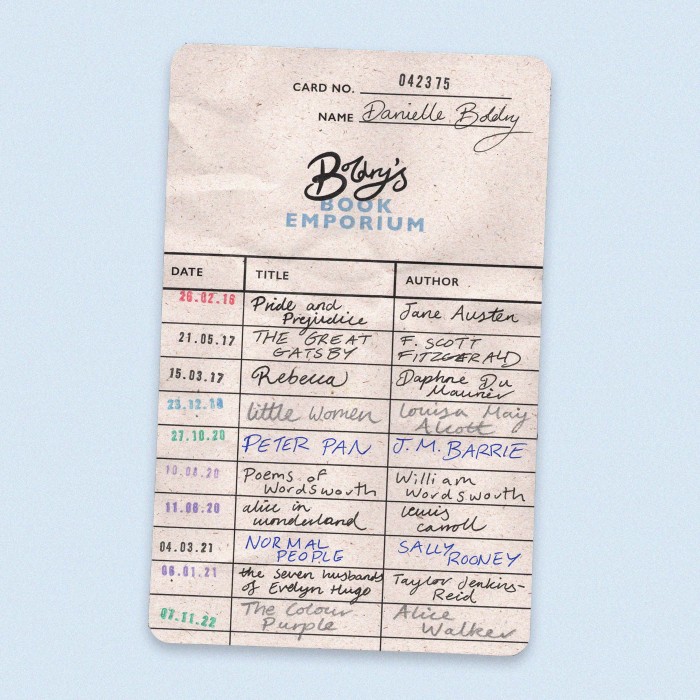 CARD NO. 042375
NAME Danielle Boldry
Boldry's
BOOK
EMPORIUM
DATE TITLE AUTHOR
26.02.16 Pride and Jane Austen
Prejudice
21.05.17 THE GREAT F. SCOTT
GATSBY FITZGERALD
15.03.17 Rebecca Daphne Du
Maurier
23.12.18 little women Louisa May
Alcott
27.10.20 PETER PAN J.M. BARRIE
Poems of William
Wordsworth Wordsworth
11.06.20 alice in lewis
wonderland carroll
04.03.21 NORMAL SALLY
PEOPLE ROONEY
06.01.21 the seven husbands Taylor Jenkins-
of Evelyn Hugo Reid
07.11.22 The Colour Alice
Purple Walker